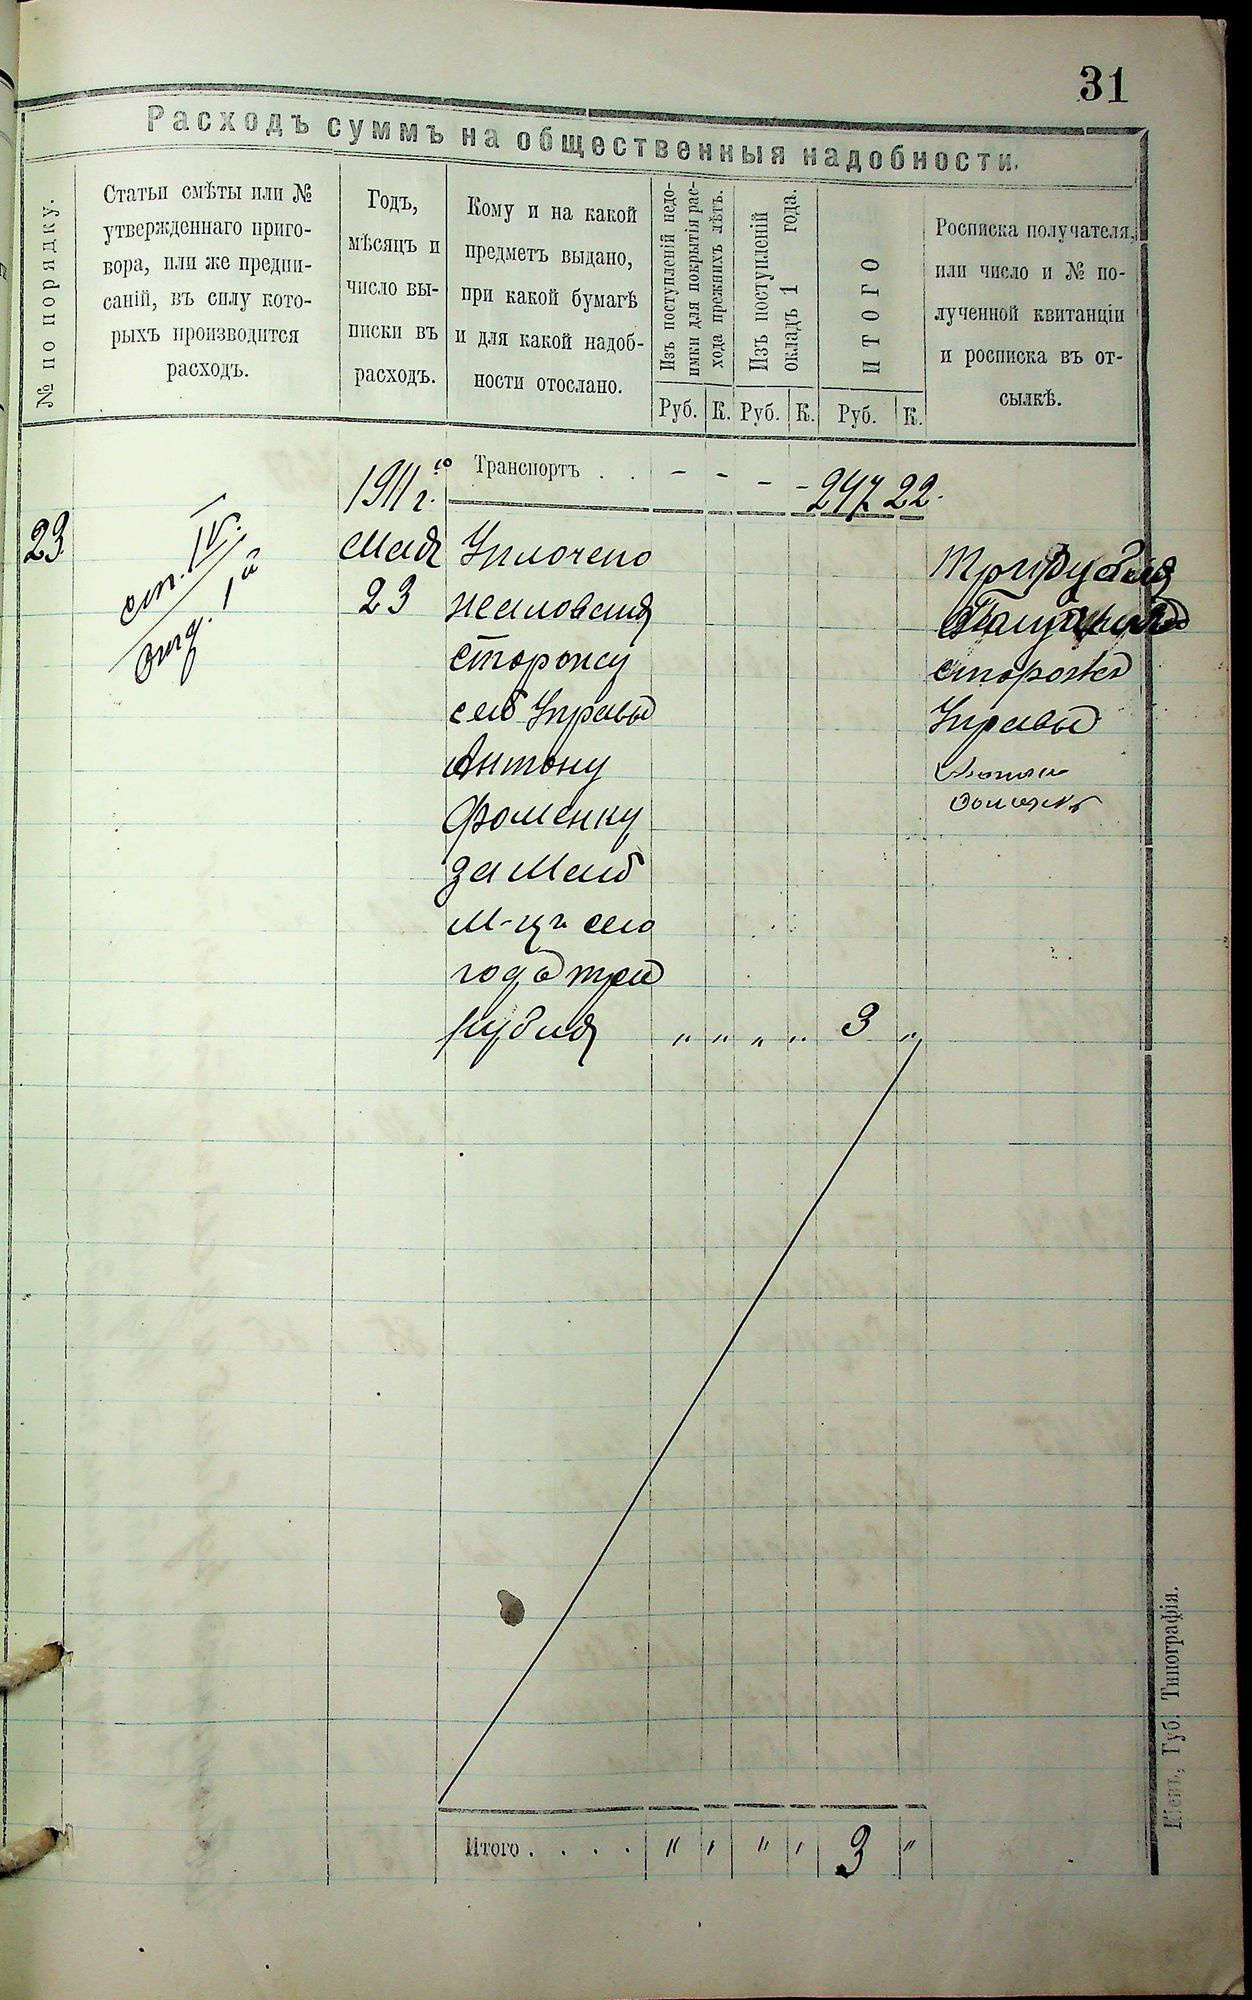 31
Расходъ суммъ на общественныя надобности.
№ по порядку.
Статьи смѣты или №
утвержденнаго приго-
вора, или же предпи-
саній, въ силу кото-
рыхъ производится
расходъ.
Годъ,
мѣсяцъ и
число вы-
писки въ
расходъ.
Кому и на какой
предметъ выдано,
при какой бумагѣ
и для какой надоб-
ности отослано.
Изъ поступленій недо-
имки для покрытія рас-
хода прежнихъ лѣтъ.
Изъ поступленій
окладъ 1 года.
ИТОГО
Росписка получателя,
или число и № по-
лученной квитанціи
и росписка въ от-
сылкѣ.
Руб. К. Руб. К. Руб. К.
1911 г. Транспортъ . . - - - - 247 22.
23
ст. IV.
1
Мая
23
Уплочено
жалованя
сторожу
сей Управы
Антону
Фоменку
за Май
м-цъ сего
года три
рубля „ „ „ „ 3 „
Три рубля
сторожъ
Управы
Итого . . . . „ „ „ „ 3 „
Кіевъ, Губ. Типографія.